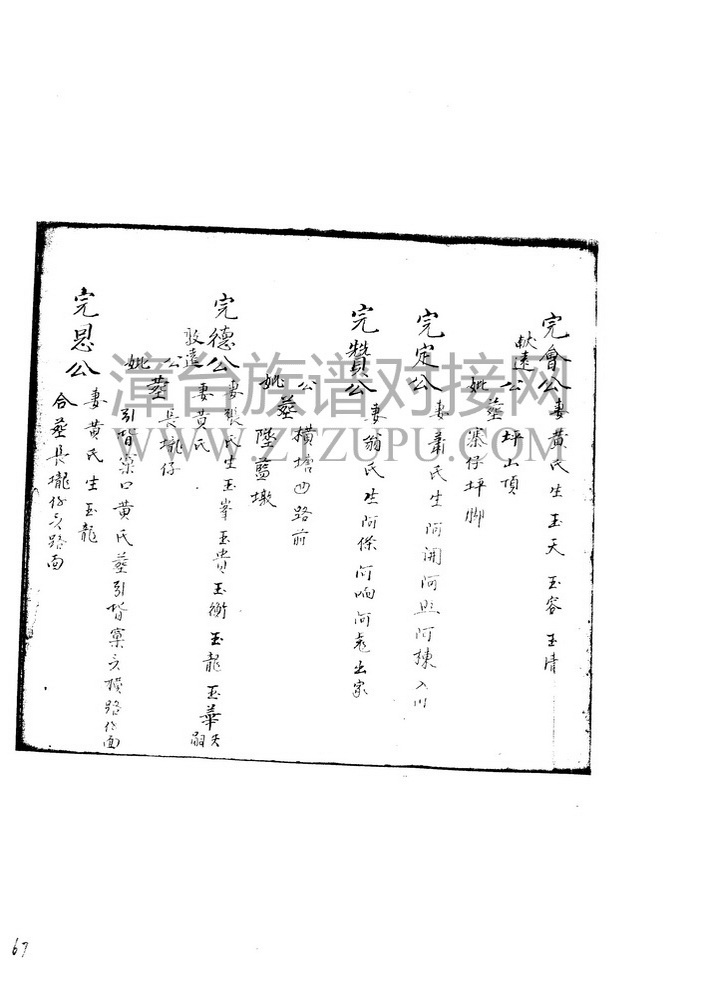 完會公妻黃氏生玉天 玉容 玉清
猷遠
公坪山頂
妣葬寨仔坪腳
完定公妻蕭氏生阿開阿照阿棟入川
完贊公妻翁氏生阿條阿响阿 出家
公橫墻凹路前
妣葬墜藍墩
完德公妻張氏生玉峯玉貴玉衡玉龍玉華天嗣
敦遠妻黃氏
公長壠仔
妣葬引背窠口黃氏葬引背窠 橫路仔面
完恩公妻黃氏生玉龍
合葬長壠仔 路面
漳台族谱对接网
WWW.ZTZUPU.COM
67